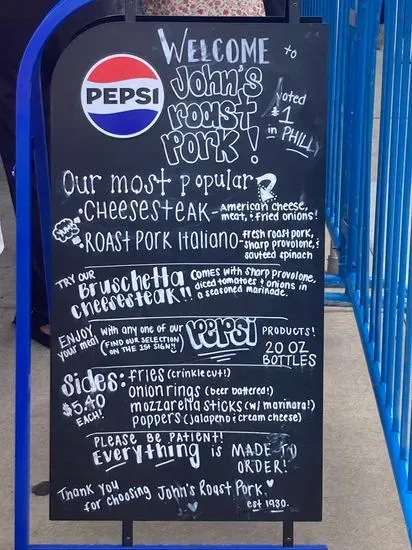 WELCOME to
PEPSI
John's
roast
PORK!
voted
#1
in PHILLY
Our most popular?
YUMMY
• CHEESESTEAK - American cheese,
meat, & fried onions!
• ROAST PORK ITALIANO - fresh roast pork,
sharp provolone, &
sauteed spinach
TRY OUR
Bruschetta
cheesesteak!!
comes with sharp provolone,
diced tomatoes & onions in
a seasoned marinade.
ENJOY
your meal
with any one of our
(FIND OUR SELECTION
ON THE 1st SIGN!!)
PEPSI PRODUCTS!
20 OZ
BOTTLES
Sides:
$5.40
EACH!
fries (crinkle cut!)
onion rings (beer battered!)
mozzarella sticks (w/ marinara!)
poppers (jalapeño & cream cheese)
PLEASE BE PATIENT!
Everything is MADE TO
ORDER!
Thank you
for choosing John's Roast Pork.
est 1930.